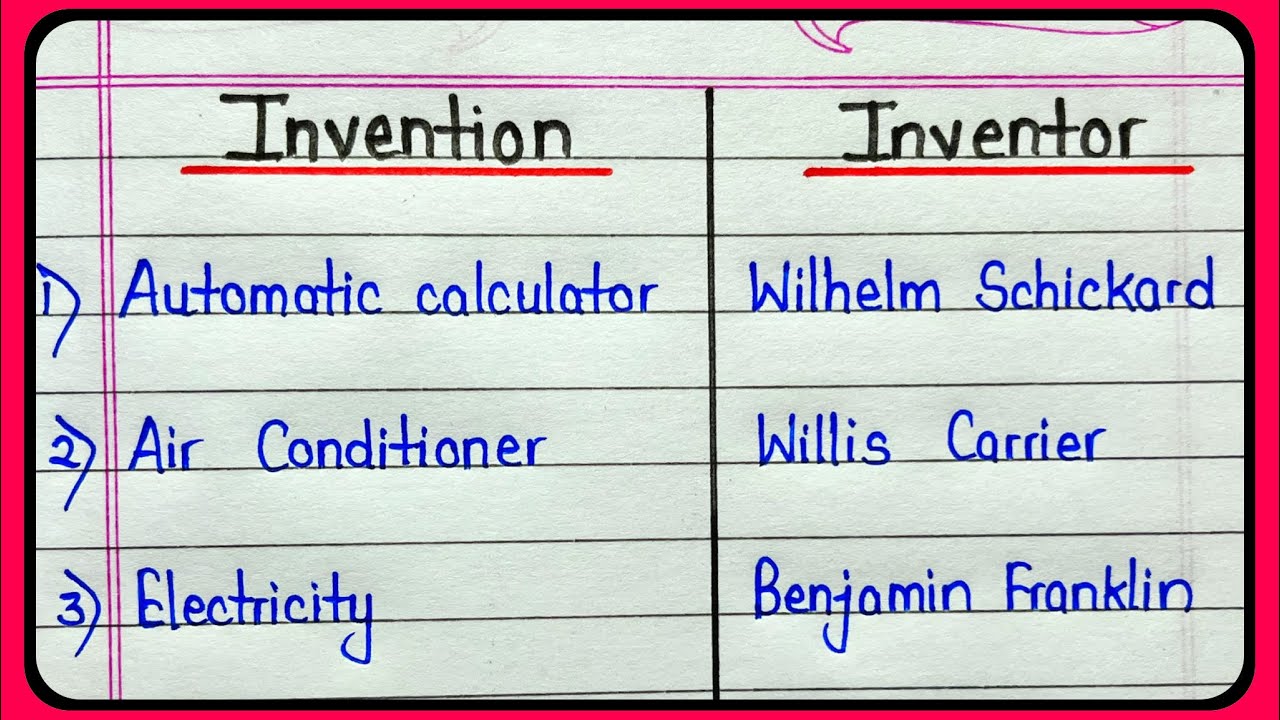 Invention Inventor
1) Automatic calculator Wilhelm Schickard
2) Air Conditioner Willis Carrier
3) Electricity Benjamin Franklin